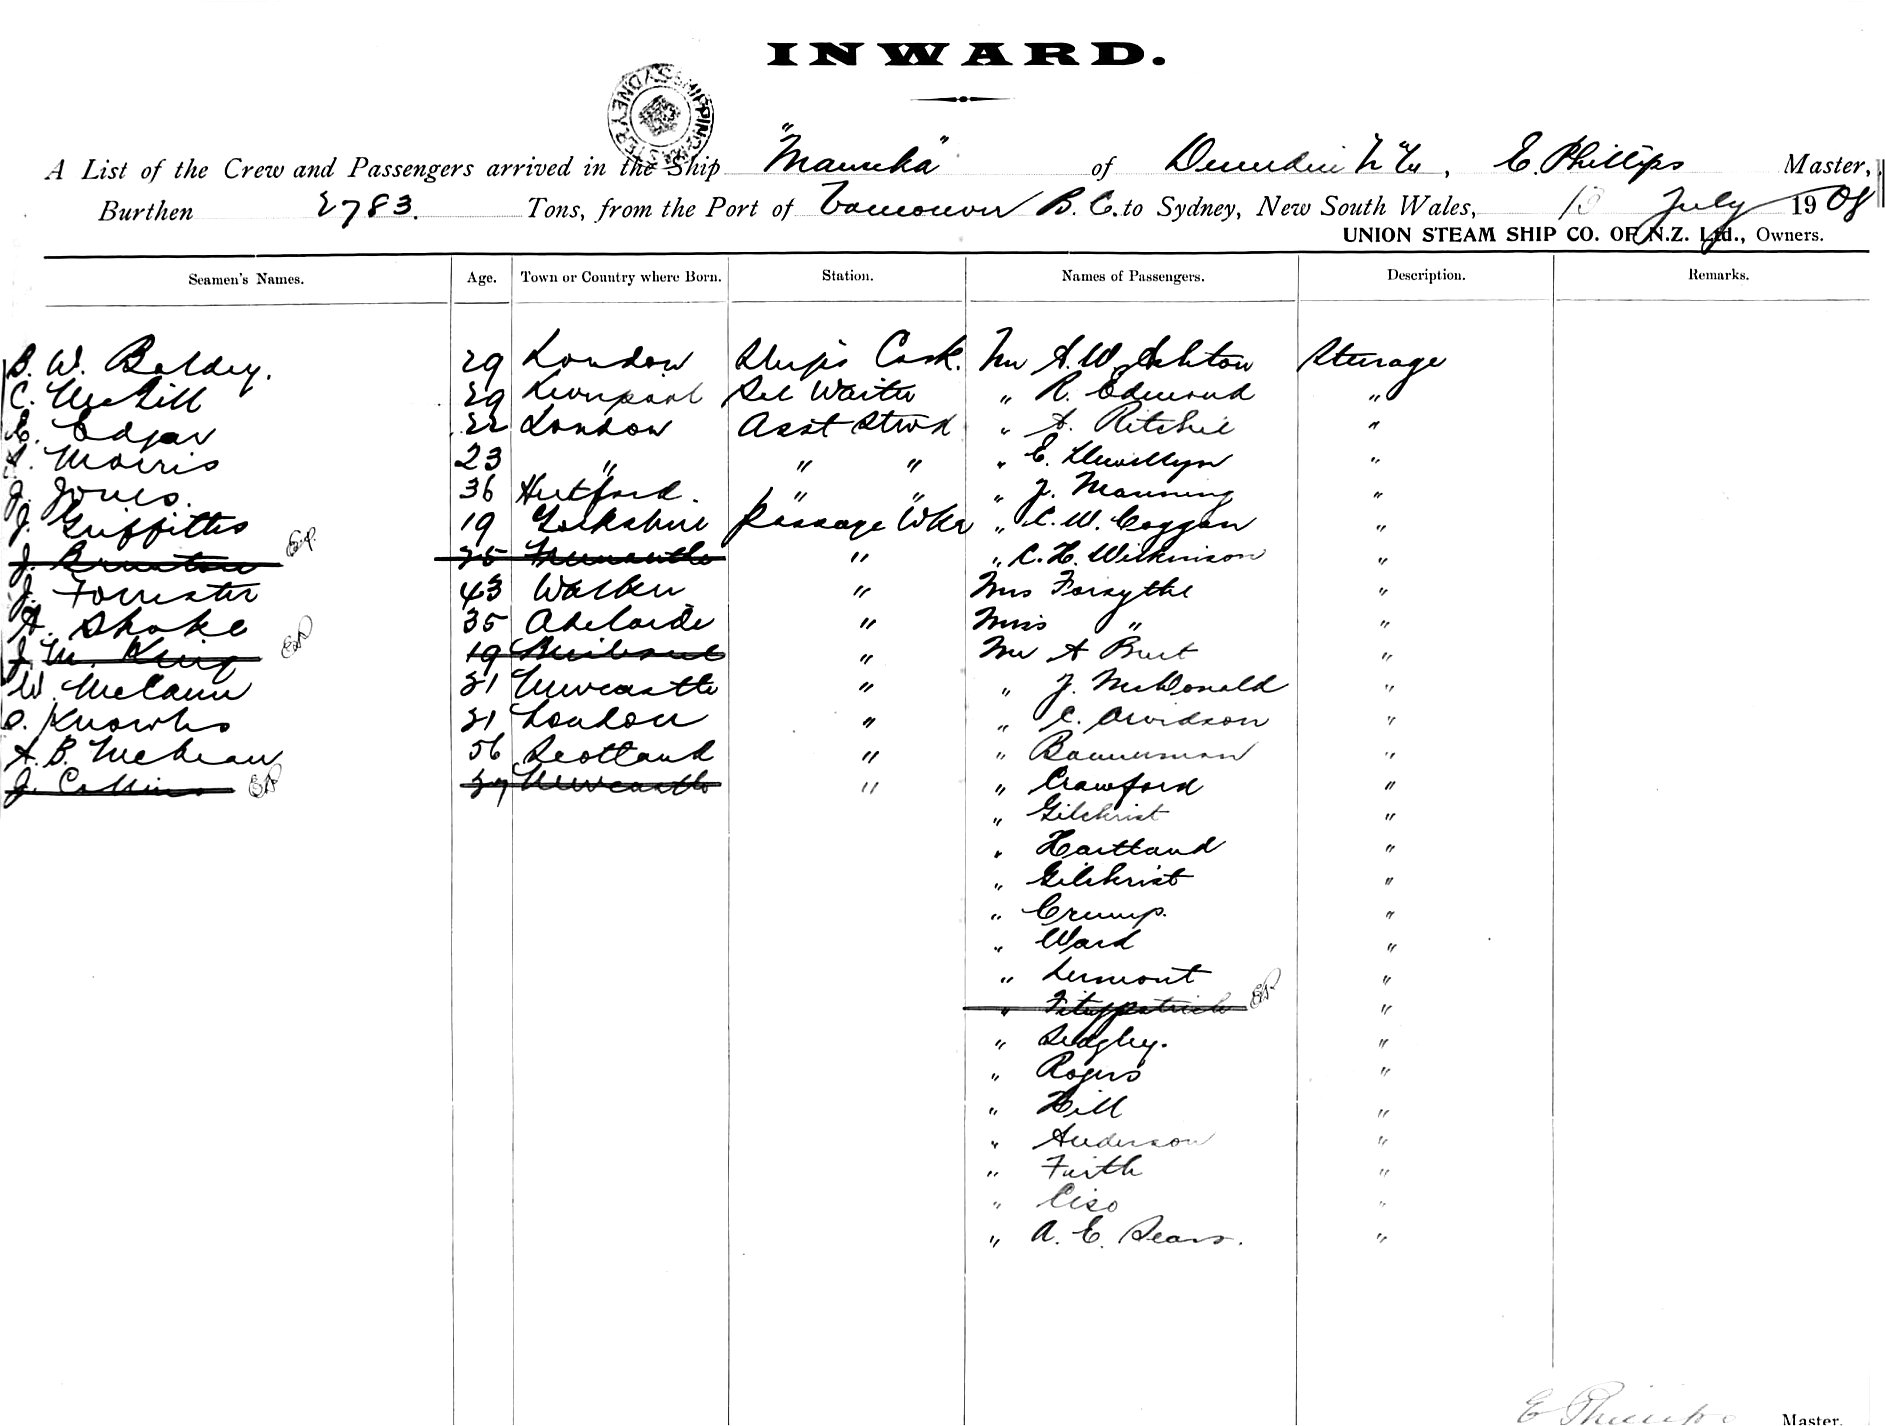 INWARD.
A List of the Crew and Passengers arrived in the Ship "Manuka" of Dunedin N Ze, E. Phillips Master,
Burthen 2783. Tons, from the Port of Vancouver B. C. to Sydney, New South Wales, 13 July 1908
UNION STEAM SHIP CO. OF N.Z. Ltd., Owners.
Seamen's Names. Age. Town or Country where Born. Station. Names of Passengers. Description. Remarks.
B. W. Baldey. 29 London Ships Cook. Mr A. W. Ashton Sturage
C. McGill 29 Liverpool Sel Waiter " R. Edmond "
E. Edgar 22 London Asst Stwd " A. Ritchie "
S. Morris 23 " " " " E. Llewellyn "
J. Jones. 36 Hertford. " " " J. Manning "
J. Griffiths 19 Yorkshire Passage Wkr " C. W. Coggan "
J. Brunton EP. 25 Fremantle " " C. H. Wilkinson "
J. Forrester 43 Walker " Mrs Forsythe "
A. Shoke 35 Adelaide " Miss " "
J. M. King EP 19 Brisbane " Mr A Burt "
W. McCann 21 Newcastle " " J. McDonald "
Knowles 21 London " " C. Arvidson "
A. B. McLean 56 Scotland " " Bannerman "
J. Collins EP 27 Newcastle " " Crawford "
" Gilchrist "
" Hartland "
" Gilchrist "
" Crump. "
" Ward "
" Lermont "
" Fitzpatrick EP "
" Sedgley. "
" Rogers "
" Hill "
" Anderson "
" Firth "
" Ciso "
" A. E. Sears. "
E Phillips Master.